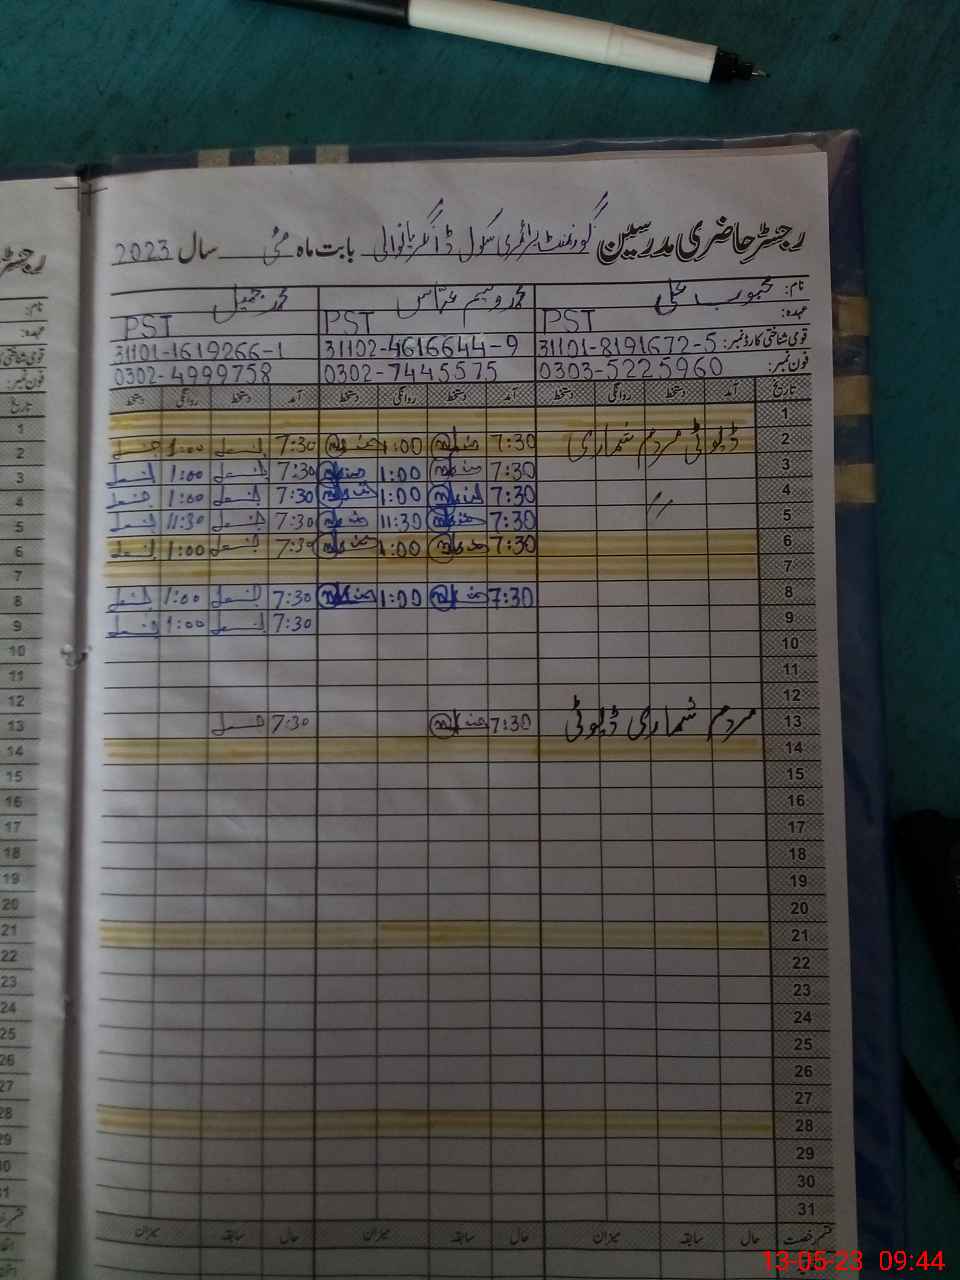 رجسٹر حاضری مدرسین گورنمنٹ پرائمری سکول ڈاگر بانوالی بابت ماہ مئی سال 2023
نام: محبوب علی محمد وسیم عباس محمد جمیل
عہدہ: PST PST PST
قومی شناختی کارڈ نمبر: 31101-8191672-5 31102-4616644-9 31101-1619266-1
فون نمبر: 0303-5225960 0302-7445575 0302-4999758
تاریخ آمد دستخط روانگی دستخط آمد دستخط روانگی دستخط آمد دستخط روانگی دستخط
1
2 ڈیوٹی مردم شماری 7:30 1:00 7:30 1:00
3 7:30 1:00 7:30 1:00
4 〃 7:30 1:00 7:30 1:00
5 7:30 11:30 7:30 11:30
6 7:30 1:00 7:30 1:00
7
8 7:30 1:00 7:30 1:00
9 7:30 1:00
10
11
12
13 مردم شماری ڈیوٹی 7:30 7:30
14
15
16
17
18
19
20
21
22
23
24
25
26
27
28
29
30
31
قسم رخصت حال سابقہ میزان حال سابقہ میزان حال سابقہ میزان
13-05-23 09:44